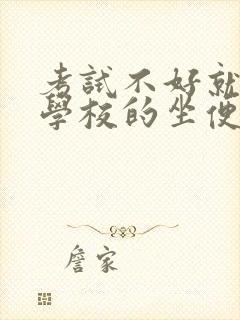 考試不好就
學校的坐便
詹家